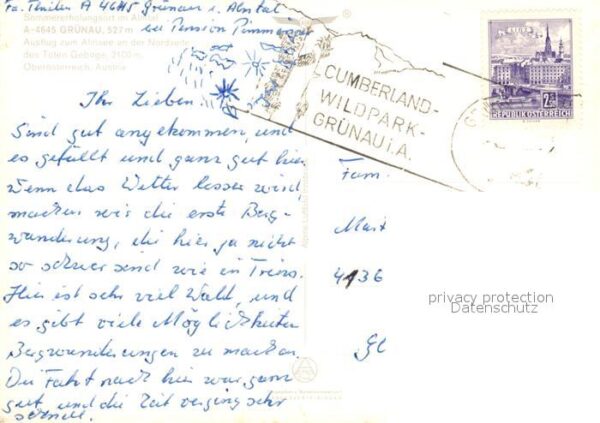 Fa. Theilen A 4645 Grünau i. Almtal
bei Pension Pimminger
Sommererholungsort im Almtal
A-4645 GRÜNAU, 527 m
Ausflug zum Almsee an der Nordseite
des Toten Gebirge, 2100 m,
Oberösterreich, Austria
Ihr Lieben
Sind gut angekommen, und
es gefällt und ganz gut hier
Wenn das Wetter besser wird
machen wir die erste Berg-
wanderung, die hier ja nicht
so schwer sind wie in Trins.
Hier ist sehr viel Wald, und
es gibt viele Möglichkeiten
Bergwanderungen zu machen.
Die Fahrt nach hier war ganz
gut und die Zeit verging sehr
schnell.
CUMBERLAND-
WILDPARK-
GRÜNAU i.A.
LINZ
2.50
REPUBLIK ÖSTERREICH
Fam.
4136
privacy protection
Datenschutz